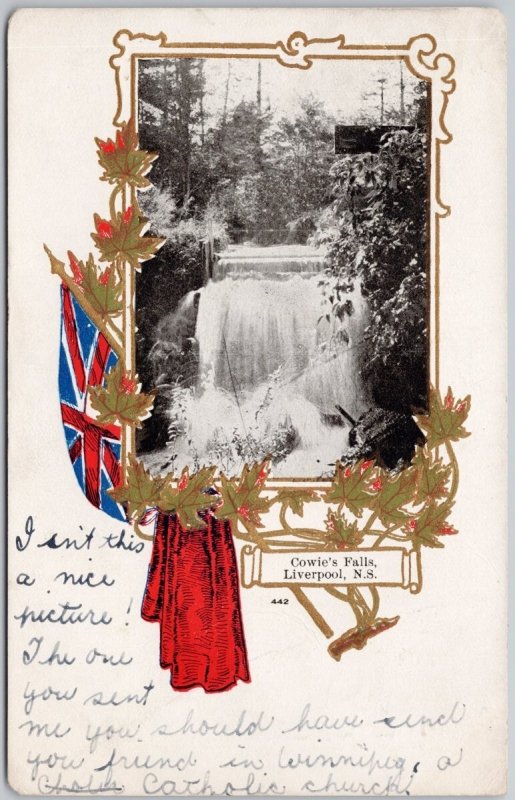 Cowie's Falls,
Liverpool, N.S.
442
I sn't this
a nice
picture!
The one
you sent
me you should have send
you friend in Winnipeg, a
Catholic church.